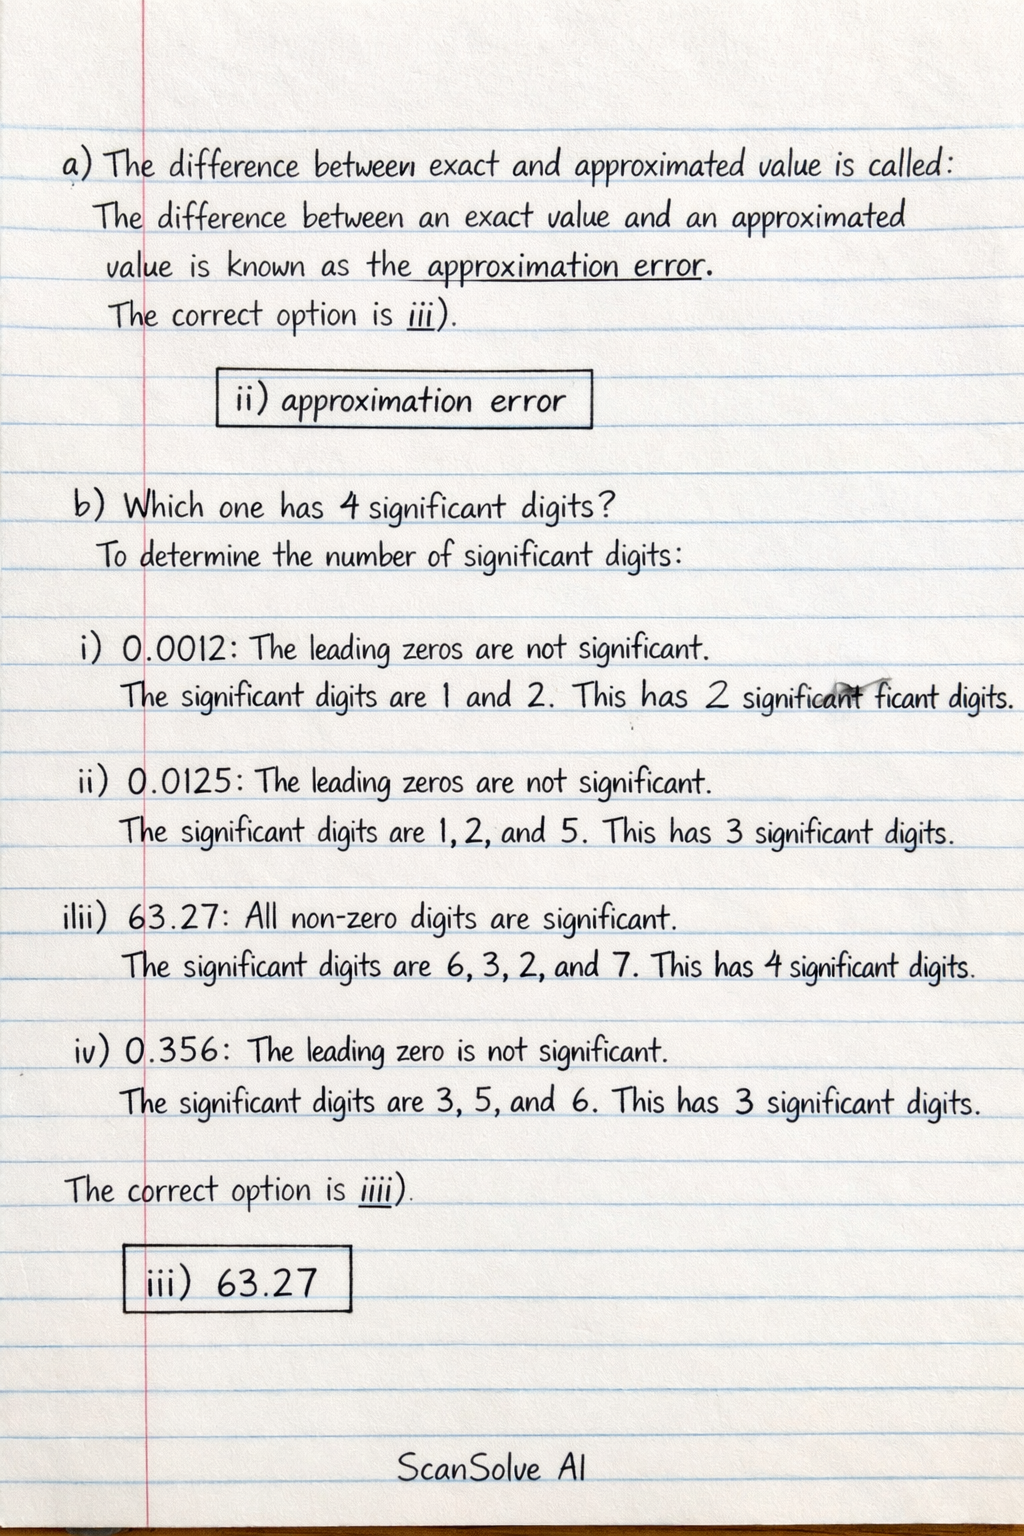 a) The difference between exact and approximated value is called:
The difference between an exact value and an approximated
value is known as the approximation error.
The correct option is iii).
ii) approximation error
b) Which one has 4 significant digits?
To determine the number of significant digits:
i) 0.0012: The leading zeros are not significant.
The significant digits are 1 and 2. This has 2 significant ficant digits.
ii) 0.0125: The leading zeros are not significant.
The significant digits are 1, 2, and 5. This has 3 significant digits.
ilii) 63.27: All non-zero digits are significant.
The significant digits are 6, 3, 2, and 7. This has 4 significant digits.
iv) 0.356: The leading zero is not significant.
The significant digits are 3, 5, and 6. This has 3 significant digits.
The correct option is iiii).
iii) 63.27
ScanSolve AI